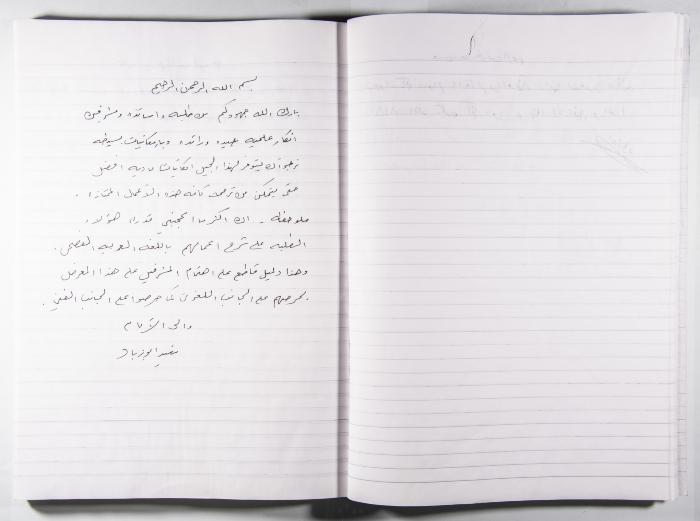 بسم الله الرحمن الرحيم
بارك الله جهودكم من طلبه واساتذه ومشرفين
افكار علميه جيده ورائده وبإمكانيات بسيطه
نرجو ان يتوفر لهذا الجيل امكانيات ماديه افضل
حتى يتمكن من ترجمة كافه هذه الأعمال الممتازه .
ملاحظه - ان اكثر ما اعجبني قدرة هؤلاء
الطلبه على شرح اعمالهم باللغه العربيه الفصحى .
وهذا دليل قاطع على اهتمام المشرفين على هذا المعرض
بحرصهم على الجانب اللغوي كما حرصوا على الجانب الفني .
والى الأمام